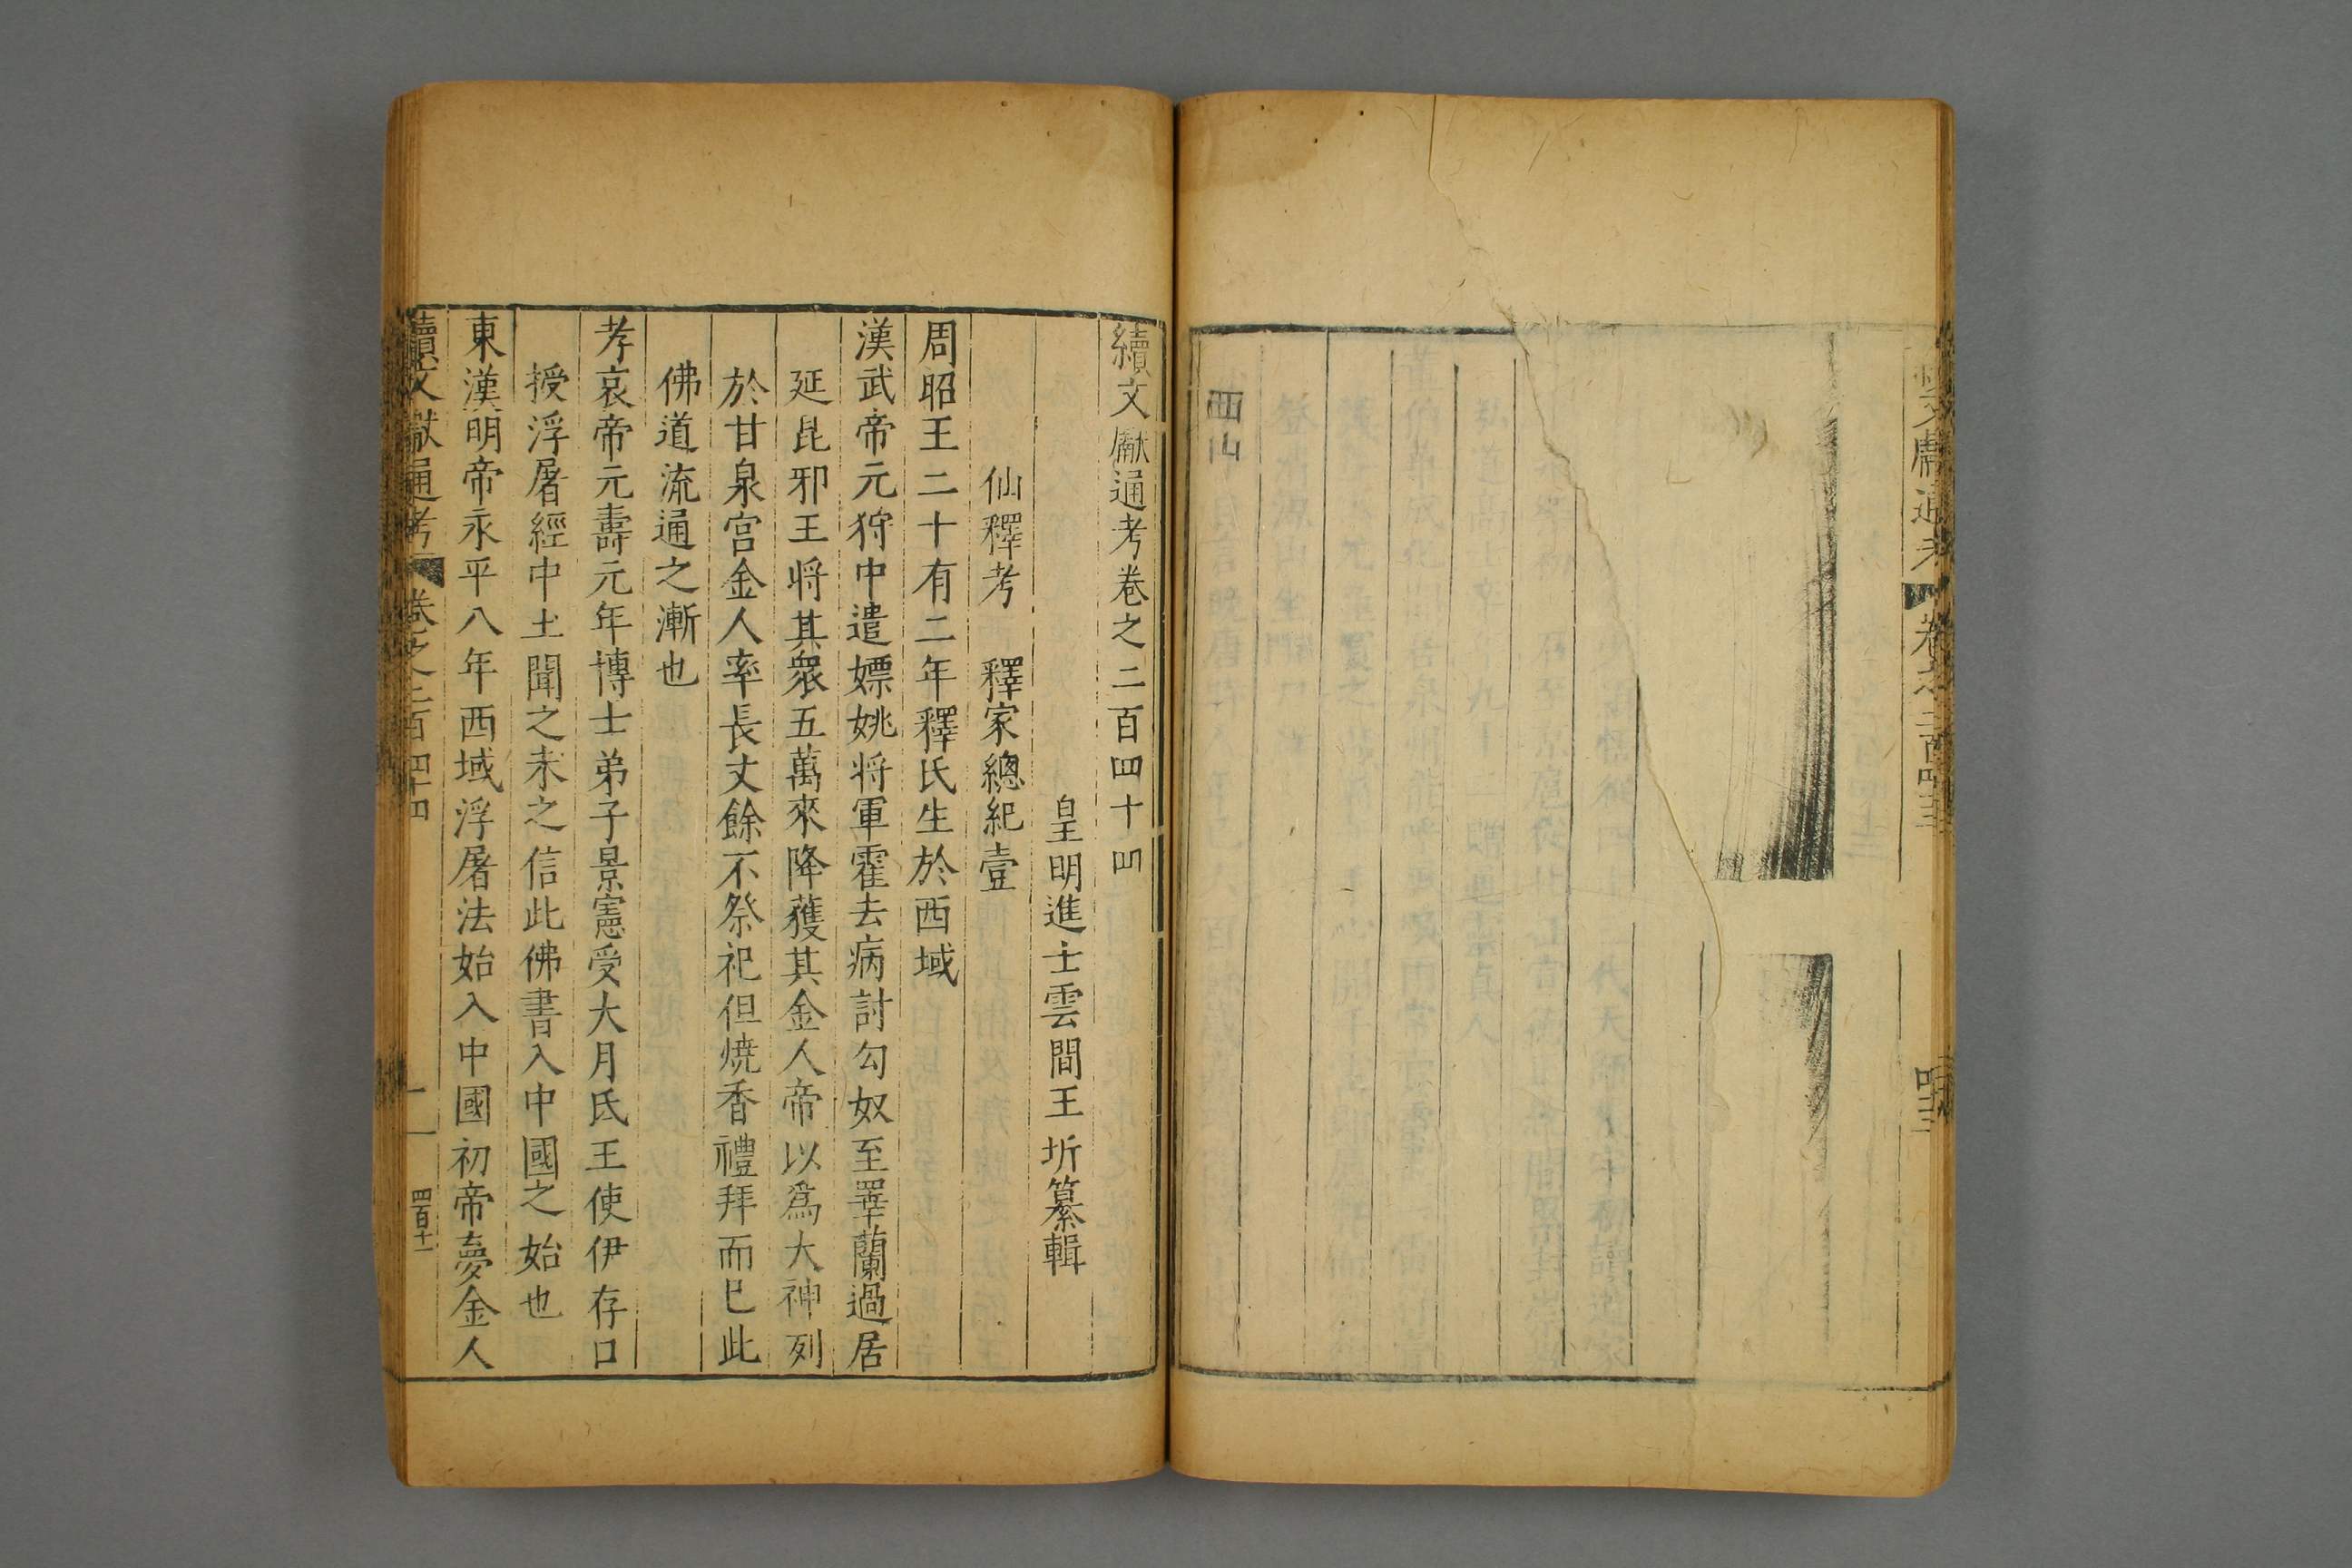 西山
續文獻通考卷之二百四十四
皇明進士雲間王圻纂輯
仙釋考 釋家總紀壹
周昭王二十有二年釋氏生於西域
漢武帝元狩中遣嫖姚將軍霍去病討匈奴至睪蘭過居
延昆邪王將其衆五萬來降獲其金人帝以爲大神列
於甘泉宮金人率長丈餘不祭祀但燒香禮拜而已此
佛道流通之漸也
孝哀帝元壽元年博士弟子景憲受大月氐王使伊存口
授浮屠經中土聞之未之信此佛書入中國之始也
東漢明帝永平八年西域浮屠法始入中國初帝夢金人
續文獻通考 卷之二百四十四 一 四百十一